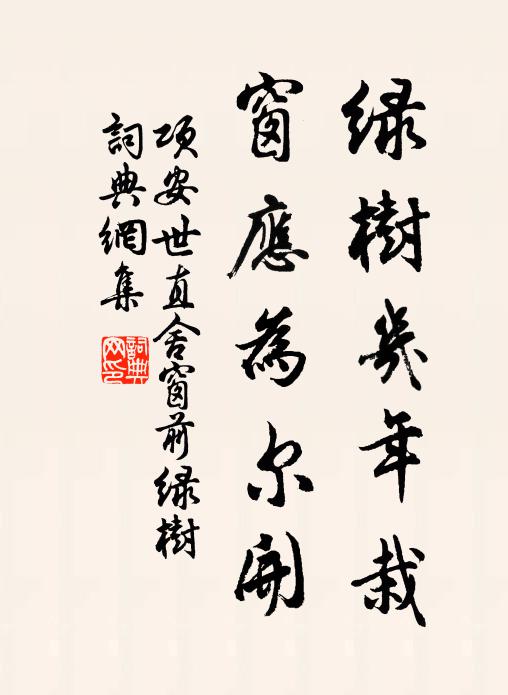 綠樹幾年栽
窗應為尔開
項安世直舍窗前綠樹
詞典網集
詞典网印